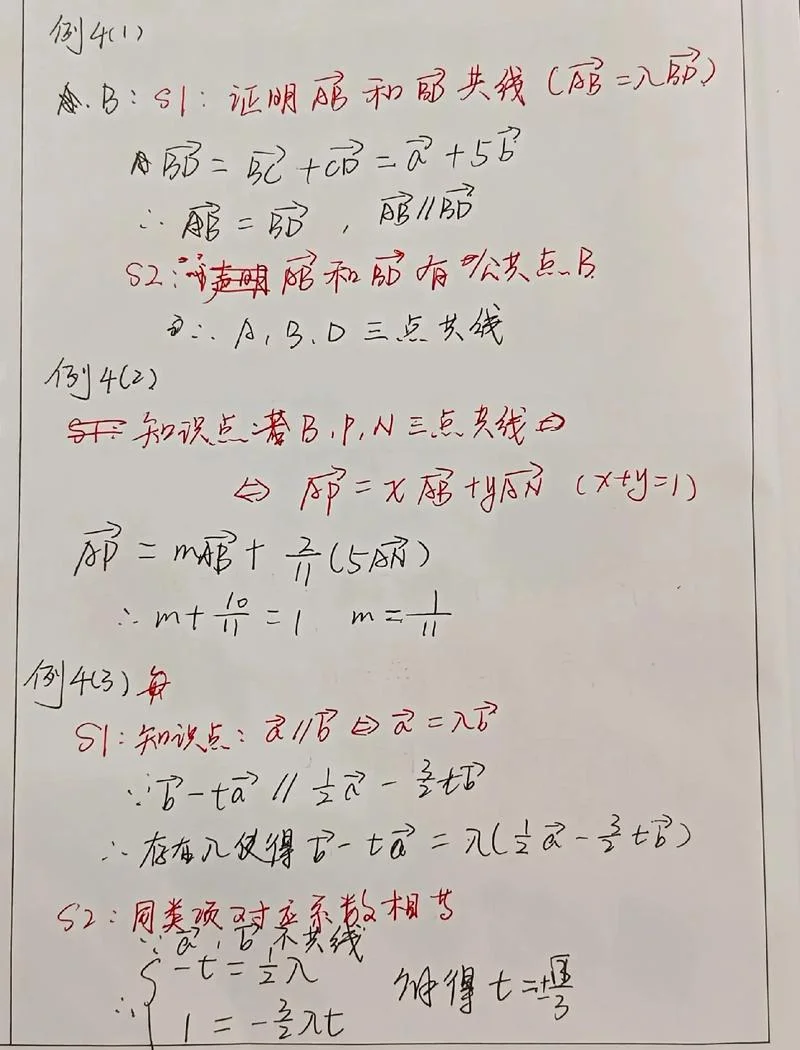 例4(1)
B: S1: 证明 $\overrightarrow{AB}$ 和 $\overrightarrow{BD}$ 共线 ($\overrightarrow{AB}=λ\overrightarrow{BD}$)
$\overrightarrow{BD}=\overrightarrow{BC}+\overrightarrow{CD}=\vec{a}+5\vec{b}$
∴ $\overrightarrow{AB}=\overrightarrow{BD}$, $\overrightarrow{AB}∥\overrightarrow{BD}$
S2: $\overrightarrow{AB}$ 和 $\overrightarrow{BD}$ 有公共点B
∴ A, B, D 三点共线
例4(2)
知识点: 若 B, P, N 三点共线 ⇔
⇔ $\overrightarrow{AP}=x\overrightarrow{AB}+y\overrightarrow{AN}$ (x+y=1)
$\overrightarrow{AP}=m\overrightarrow{AB}+\frac{2}{11}(5\overrightarrow{AN})$
∴ $m+\frac{10}{11}=1$ $m=\frac{1}{11}$
例4(3)
S1: 知识点: $\vec{a}∥\vec{b}⇔\vec{a}=λ\vec{b}$
∵ $\vec{b}-t\vec{a}∥\frac{1}{2}\vec{a}-\frac{3}{2}t\vec{b}$
∴ 存在λ使得 $\vec{b}-t\vec{a}=λ(\frac{1}{2}\vec{a}-\frac{3}{2}t\vec{b})$
S2: 同类项对应系数相等
∵ $\vec{a}$, $\vec{b}$ 不共线
∴ { $-t=\frac{1}{2}λ$
$1=-\frac{3}{2}λt$ 解得 $t=±\frac{\sqrt{3}}{3}$